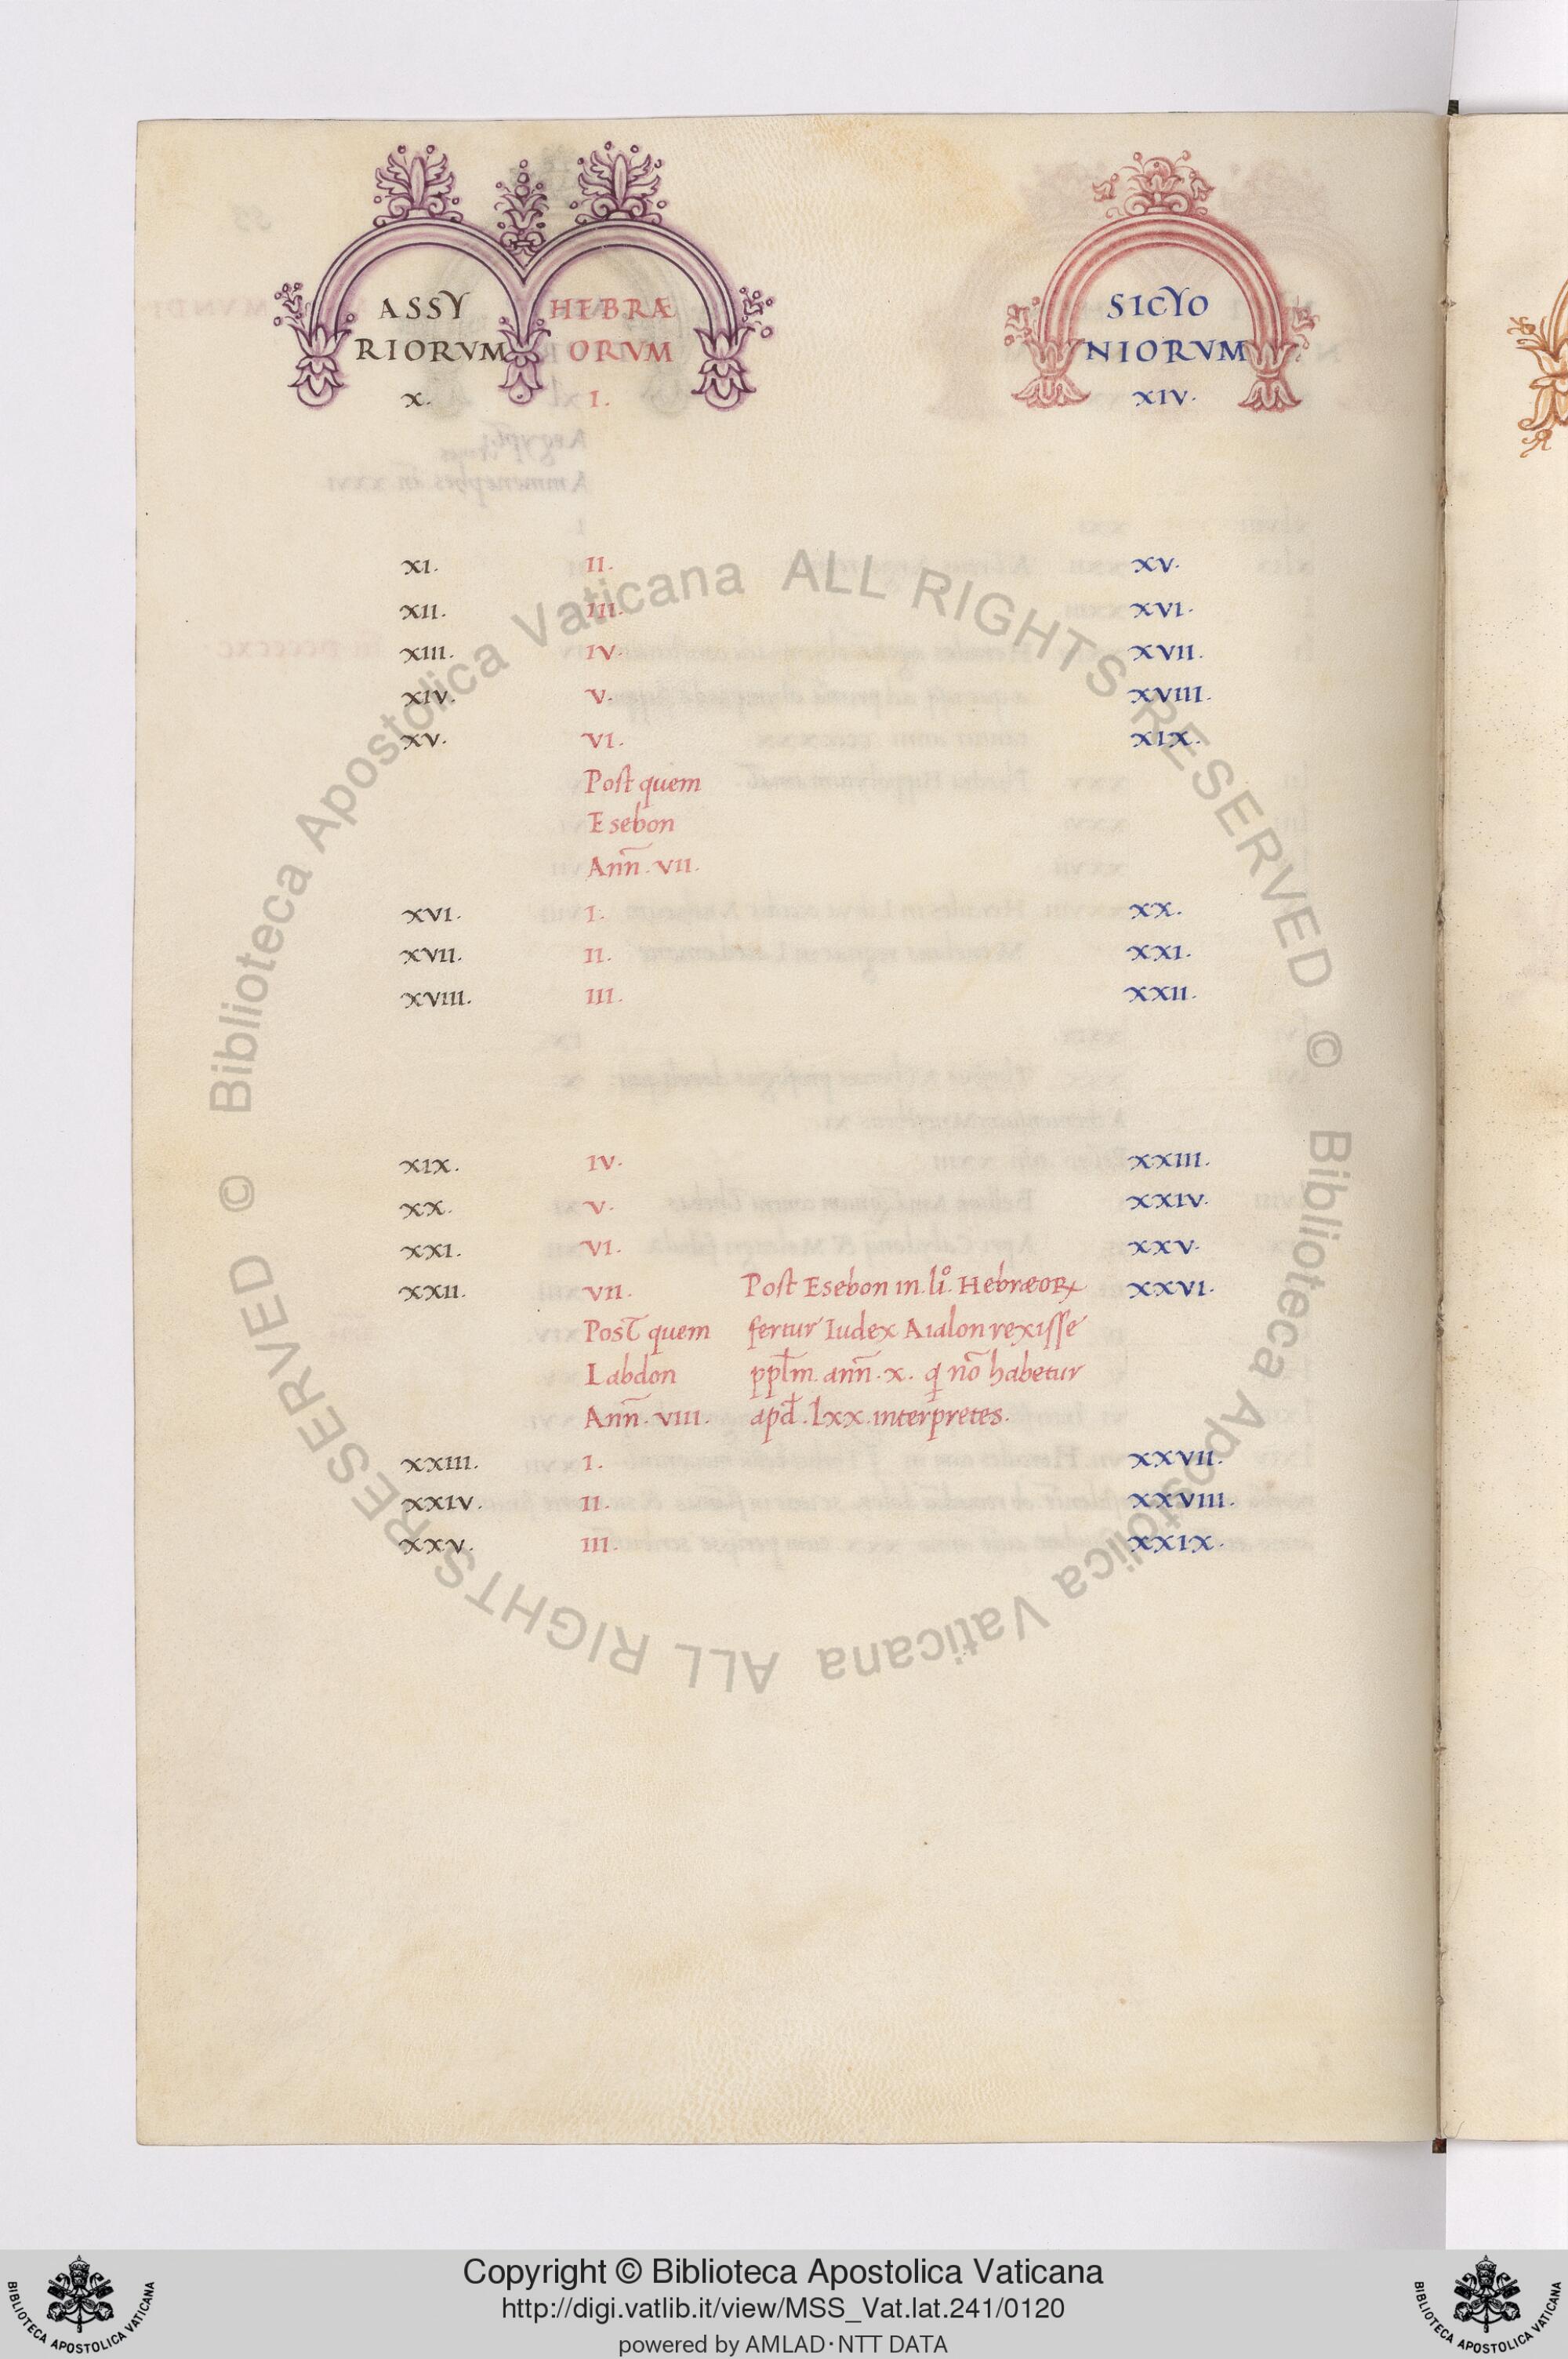 ASSY HEBRÆ SICYO
RIORVM ORVM NIORVM
X. I. XIV.
XI. II. XV.
XII. III. XVI.
XIII. IV. XVII.
XIV. V. XVIII.
XV. VI. XIX.
Post quem
Esebon
Ann̄. VII.
XVI. I. XX.
XVII. II. XXI.
XVIII. III. XXII.
XIX. IV. XXIII.
XX. V. XXIV.
XXI. VI. XXV.
XXII. VII. Post Esebon in li°. Hebræoꝝ XXVI.
Post quem fertur Iudex Aialon rexisse
Labdon ppl̄m. ann̄. x. q nō habetur
Ann̄. VIII. apd̄. lxx. interpretes.
XXIII. I. XXVII.
XXIV. II. XXVIII.
XXV. III. XXIX.
© Biblioteca Apostolica Vaticana ALL RIGHTS RESERVED
© Biblioteca Apostolica Vaticana ALL RIGHTS RESERVED
Copyright © Biblioteca Apostolica Vaticana
http://digi.vatlib.it/view/MSS_Vat.lat.241/0120
powered by AMLAD·NTT DATA
BIBLIOTECA APOSTOLICA VATICANA
BIBLIOTECA APOSTOLICA VATICANA